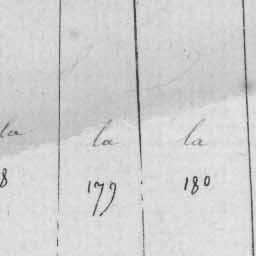 la la la
8 179 180